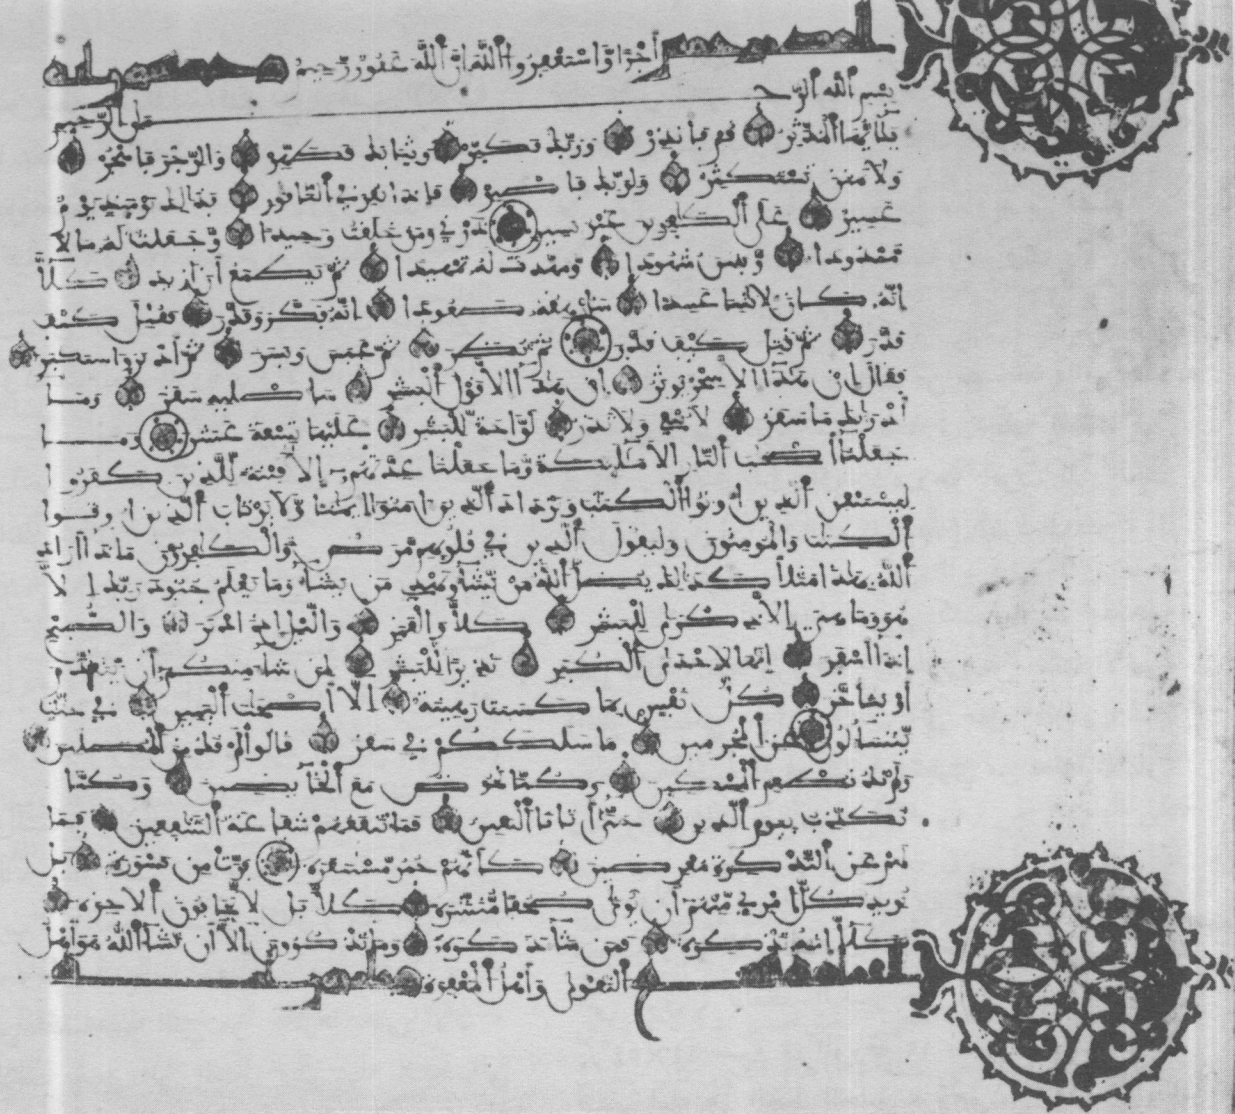 أجرا واستغفروا الله إن الله غفور رحيم
بسم الله الرحمن الرحيم
يأيها المدثر قم فأنذر وربك فكبر وثيابك فطهر والرجز فاهجر
ولا تمنن تستكثر ولربك فاصبر فإذا نقر في الناقور فذلك يومئذ يوم
عسير على الكفرين غير يسير ذرني ومن خلقت وحيدا وجعلت له مالا
ممدودا وبنين شهودا ومهدت له تمهيدا ثم يطمع أن أزيد كلا
إنه كان لأيتنا عنيدا سأرهقه صعودا إنه فكر وقدر فقتل كيف
قدر ثم قتل كيف قدر ثم نظر ثم عبس وبسر ثم أدبر واستكبر
فقال إن هذا إلا سحر يوثر إن هذا إلا قول البشر سأصليه سقر وما
أدريك ما سقر لا تبقي ولا تذر لواحة للبشر عليها تسعة عشر وما
جعلنا أصحب النار إلا ملئكة وما جعلنا عدتهم إلا فتنة للذين كفروا
ليستيقن الذين أوتوا الكتب ويزداد الذين ءامنوا إيمنا ولا يرتاب الذين أوتوا
الكتب والمومنون وليقول الذين في قلوبهم مرض والكفرون ماذا أراد
الله بهذا مثلا كذلك يضل الله من يشاء ويهدي من يشاء وما يعلم جنود ربك إلا
هو وما هي إلا ذكرى للبشر كلا والقمر واليل إذ ادبر والصبح
إذا أسفر إنها لإحدى الكبر نذيرا للبشر لمن شاء منكم أن يتقدم
أو يتأخر كل نفس بما كسبت رهينة إلا أصحب اليمين في جنت
يتساءلون عن المجرمين ما سلككم في سقر قالوا لم نك من المصلين
ولم نك نطعم المسكين وكنا نخوض مع الخائضين وكنا
نكذب بيوم الدين حتى أتانا اليقين فما تنفعهم شفعة الشفعين فما
لهم عن التذكرة معرضين كأنهم حمر مستنفرة فرت من قسورة بل
يريد كل امرئ منهم أن يوتى صحفا منشرة كلا بل لا يخافون الأخرة
كلا إنه تذكرة فمن شاء ذكره وما تذكرون إلا أن يشاء الله هو أهل
التقوى وأهل المغفرة